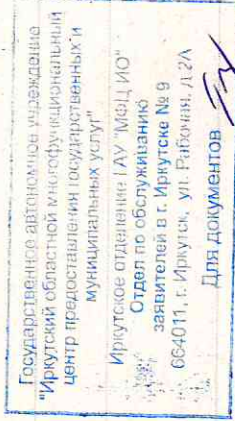 Государственное автономное учреждение
"Иркутский областной многофункциональный
центр предоставления государственных и
муниципальных услуг"
Иркутское отделение ГАУ "МФЦ ИО"
Отдел по обслуживанию
заявителей в г. Иркутске № 9
664011, г. Иркутск, ул. Рабочая, д.2А
Для документов